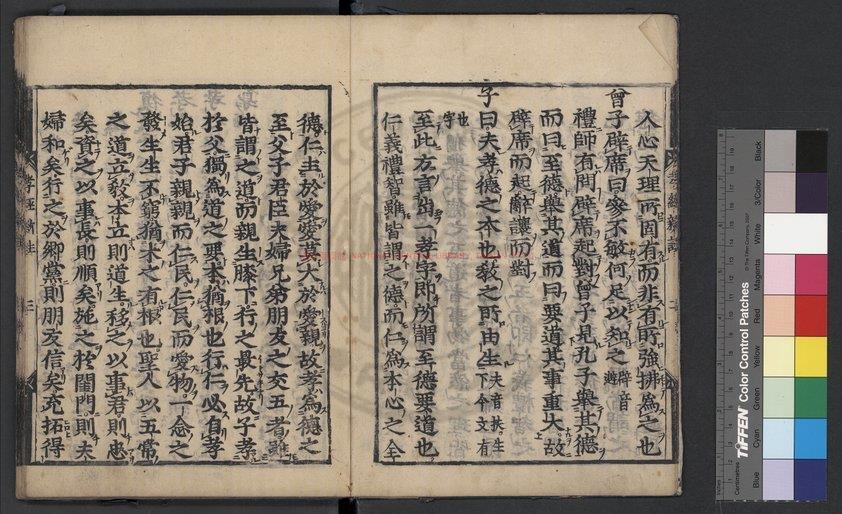 人心天理所固有而非有所強拂為之也
曾子辟席曰參不敏何足以知之辟音避
禮師有問辟席起對曾子見孔子與其德
而曰至德與其道而曰要道其事重大故
辟席而起辭讓而對
子曰夫孝德之本也教之所由生夫音扶生下今文有
也字
至此方言出一孝字即所謂至德要道也
仁義禮智雖皆謂之德而仁為本心之全
德仁主於愛愛莫大於愛親故孝為德之
至父子君臣夫婦兄弟朋友之交五者雖
皆謂之道而親生膝下行之最先故子孝
於父獨為道之要本猶根也行仁必自孝
始君子親親而仁民仁民而愛物一念之
發生生不窮猶木之有根也聖人以五常
之道立教本立則道生移之以事君則忠
矣資之以事長則順矣施之於閨門則夫
婦和矣行之於鄉黨則朋友信矣充拓得
TIFFEN Color Control Patches
© The Tiffen Company, 2007
Centimetres
Inches
Blue
Cyan
Green
Yellow
Red
Magenta
White
3/Color
Black